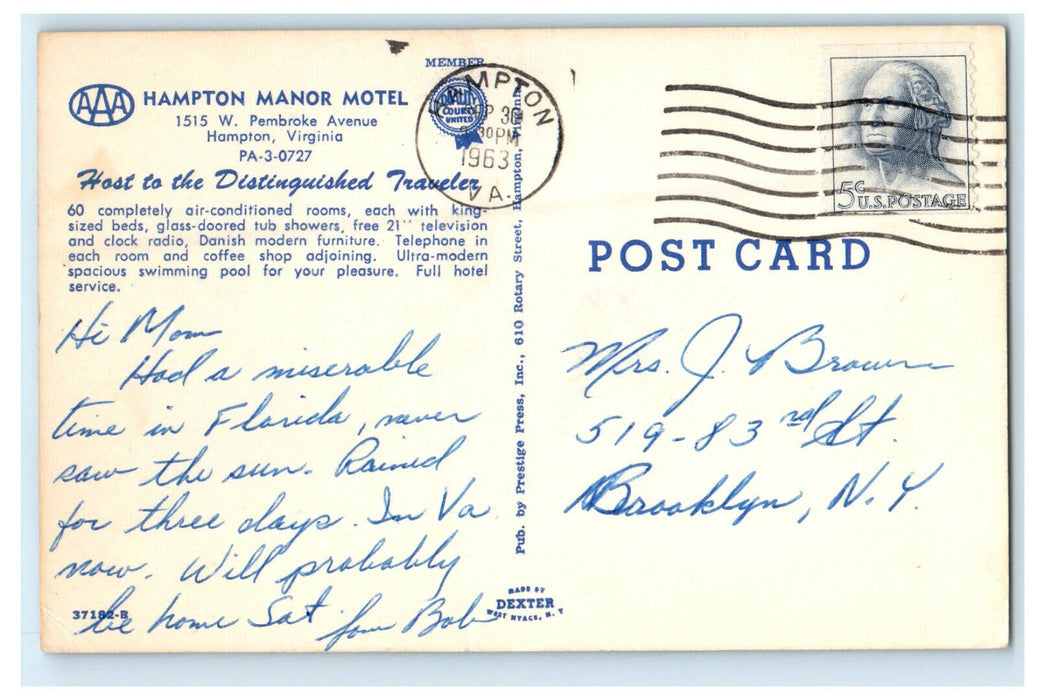 AAA HAMPTON MANOR MOTEL
1515 W. Pembroke Avenue
Hampton, Virginia
PA-3-0727
Host to the Distinguished Traveler
60 completely air-conditioned rooms, each with king-
sized beds, glass-doored tub showers, free 21" television
and clock radio, Danish modern furniture. Telephone in
each room and coffee shop adjoining. Ultra-modern
spacious swimming pool for your pleasure. Full hotel
service.
MEMBER
QUALITY
COURTS
UNITED
HAMPTON
30
30 PM
1963
VA.
Hi Mom
Had a miserable
time in Florida, never
saw the sun. Rained
for three days. In Va
now. Will probably
be home Sat
Bob
37182-B
Pub. by Prestige Press, Inc., 610 Rotary Street, Hampton,
MADE BY
DEXTER
WEST NYACK, N. Y.
5c U.S. POSTAGE
POST CARD
Mrs. J. Brown
519-83rd St.
Brooklyn, N.Y.